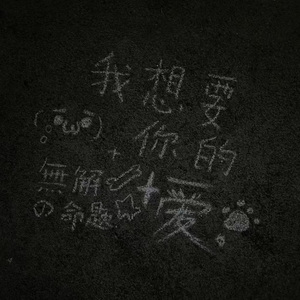 我想要
你的
愛
無解
の命題